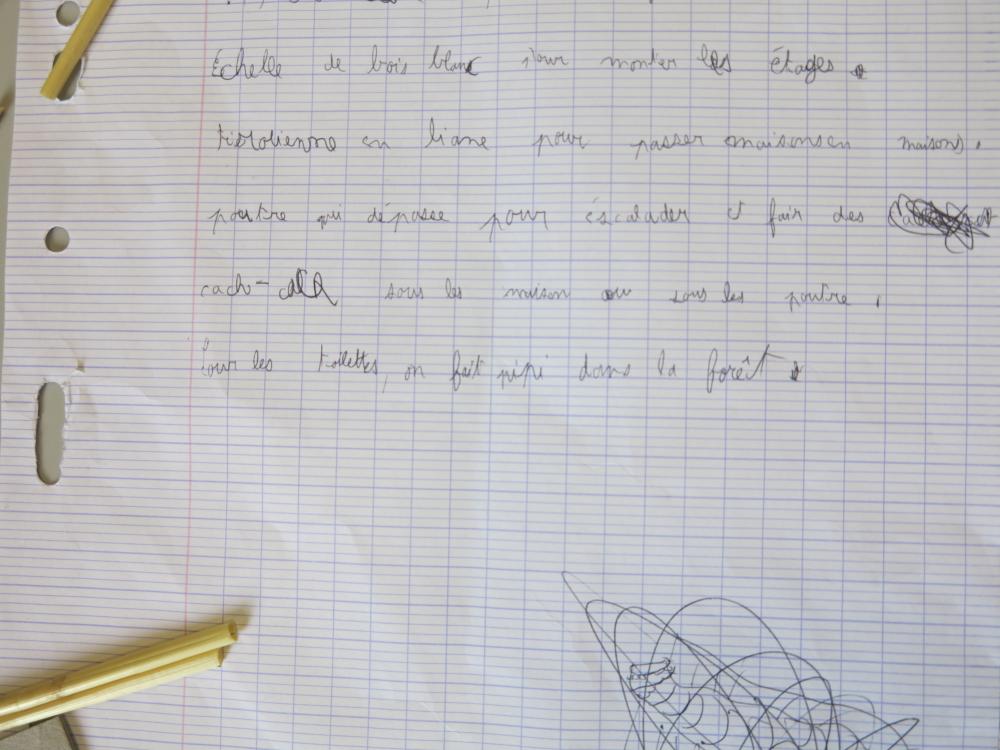 Échelle de bois blanc pour monter les étages.
tirolienne en liane pour passer maisonsen maisons.
poutre qui dépasse pour éscalader et fair des
cach- sous les maison ou sous les poutre.
Pour les toilettes, on fait pipi dans la forêt.